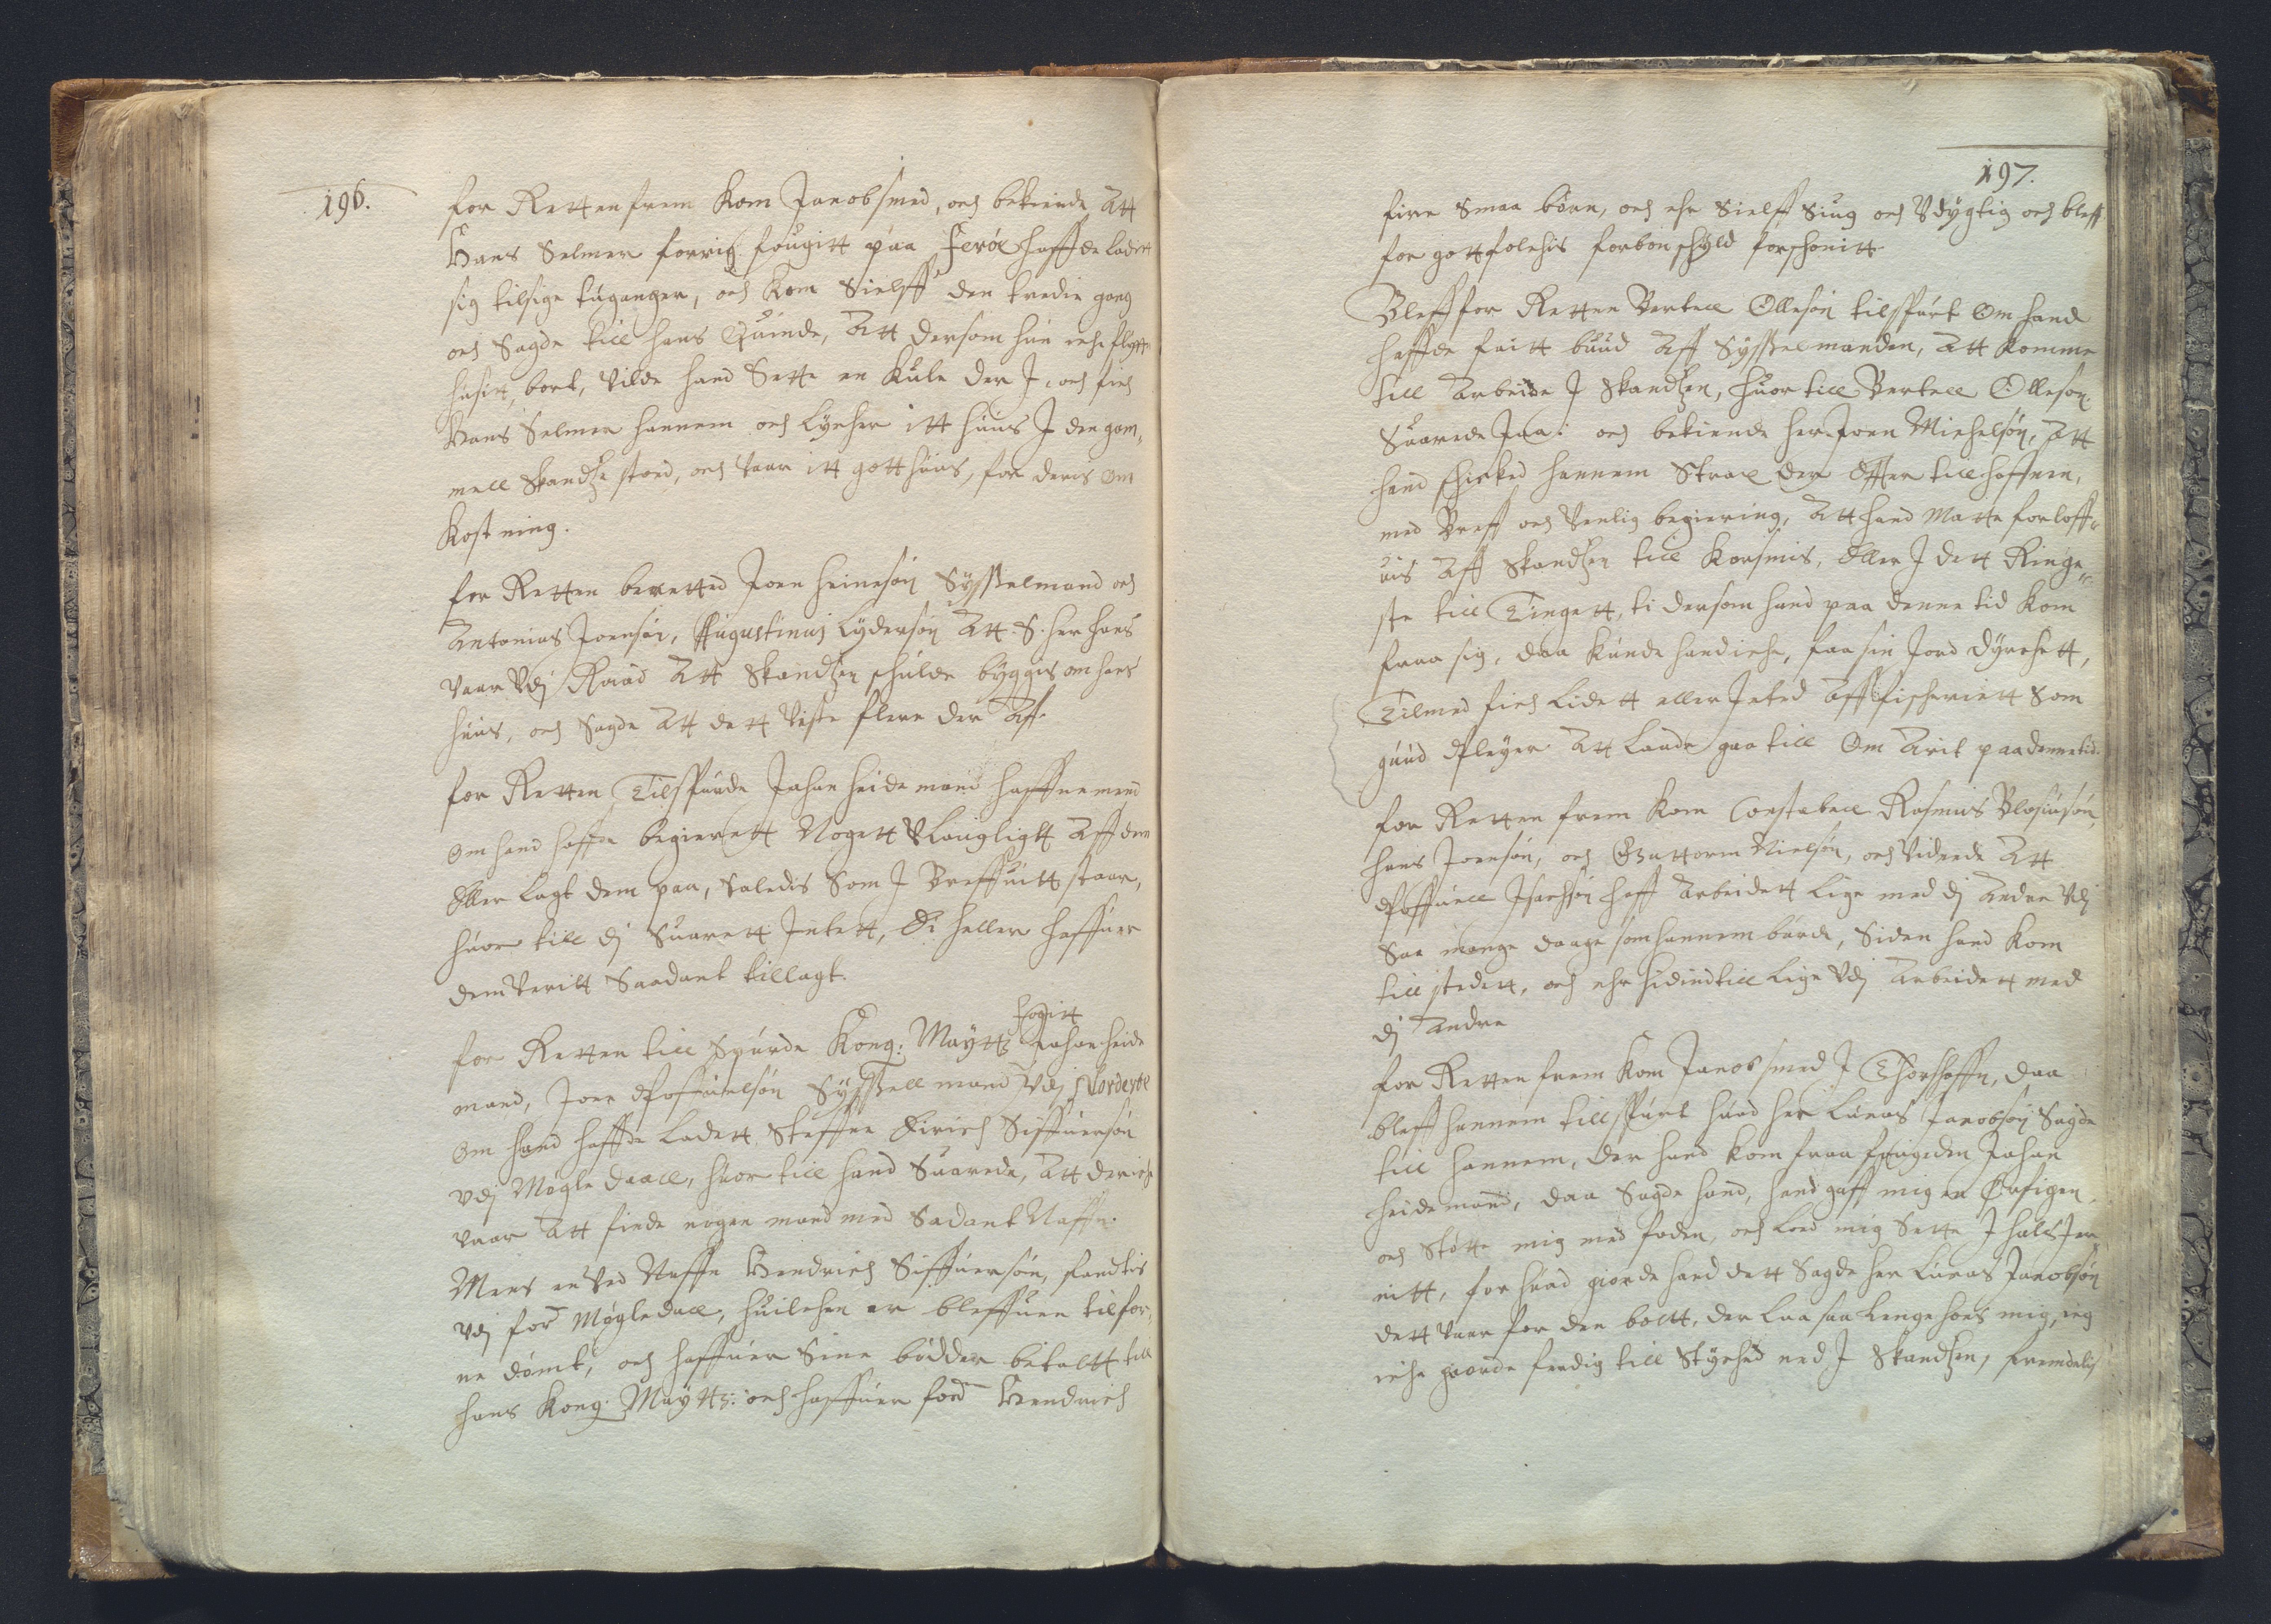 196.
for Retten frem Kom Jacob smed, och bekiende Att
Hans Selmer forrig fougitt paa Ferøe haffde ladet
sig tilsige tuganger, och Kom Sielff den tredie gang
och Sagde till hans Quinde, Att dersom hun iche flytte
husit, bort, vilde hand Sette en Kule der J, och fich
Hans Selmer hannem och Lycher itt huus J den gam,
mell Skandtze stoed, och vaar itt gott huus, for deris Om
Kostning.
for Retten beretted Joen heinesøn Sysselmand och
Antonius Joensøn, Augustinus Lydersøn Att S. her hans
vaar vdj Raad Att Skandtzen schulde byggis om hans
huus, och Sagde Att det viste flere der Aff.
for Retten Tilspurde Johan heidemand haffnemend
om hand haffde begierett Nogett Vlougligtt Aff dem
Eller lagt dem paa, saledis Som J Breffuitt staar,
huor till dj Suarett Intett, Ei heller haffuer
dem veritt Saadant tillagt.
for Retten till Spurde Kong: Maytz fogitt Johan heide
mand, Joen Poffuelsøn Sysselmand vdj Norderøe
om hand haffde Ladett Steffne Dirich Siffuersøn
vdj Møgledaall, huor till hand Suarede, Att der iche
vaar Att finde nogen mand med Sadant Naffn.
Mens en ved Naffn Hendrich Siffuersøn, fandtis
vdj for Møgledall, huilchen er bleffuen tilfor,
ne dømt, och haffuer Sine bødder betaltt till
hans Kong. Maytz: och haffuer ford Hendrich
197.
fire Smaa børn, och ehr Sielff Siug och Vdygtig och bleff
for gottfolchis forbøn schyld forschonitt
Bleff for Retten Bertell Ollesøn tilspurt Om hand
haffde faitt buud Aff Sysselmanden, Att Komme
till Arbeide J Skandtzen, huor till Bertell Ollesøn
Suarede Jaa: och bekiende her Joen Michelsøn, Att
hand schicked hannem Strax der Effter till haffnen,
med Breff och venlig begiering, Att hand Matte forloff,
uis Aff Skandtzen till Korsmis, Eller J det Ringe,
ste till Tingett, ti dersom hand paa denne tid Kom
fraa sig, daa kunde hand iche, faa sin Jord dyrchett,
Tilmed fich Lidett eller Inted Aff fischeriett Som
guud pleyer Att Lade gaa till Om Arit paa denne tid.
for Retten frem Kom Constabell Rasmus Blasiusøn,
hans Joensøn, och Guttorm Nielsøn, och vidnede Att
Poffuell Isachsøn haff Arbeidett Lige med dj Andre vdj
Saa mange dage som hannem burde, Siden hand Kom
till stedett, och ehr hidindtill Lige vdj Arbeidett med
dj Andre
for Retten frem Kom Jacob smed J Thorshaffn, daa
bleff hannem tillspurt huad her Lucas Jacobsøn Sagde
till hannem, der hand kom fraa fougeden Johan
heidemand, daa Sagde hand, hand gaff mig en Ørfigen
och Støtte mig med foden, och Lod mig Sette J halsJer
nitt, for huad giorde hand dett Sagde her Lucas Jacobsøn
dett vaar for den boltt, der Laa saa Lenge hoes mig, ieg
iche giorde ferdig till Stychid ned J Skandtzen, fremdelis